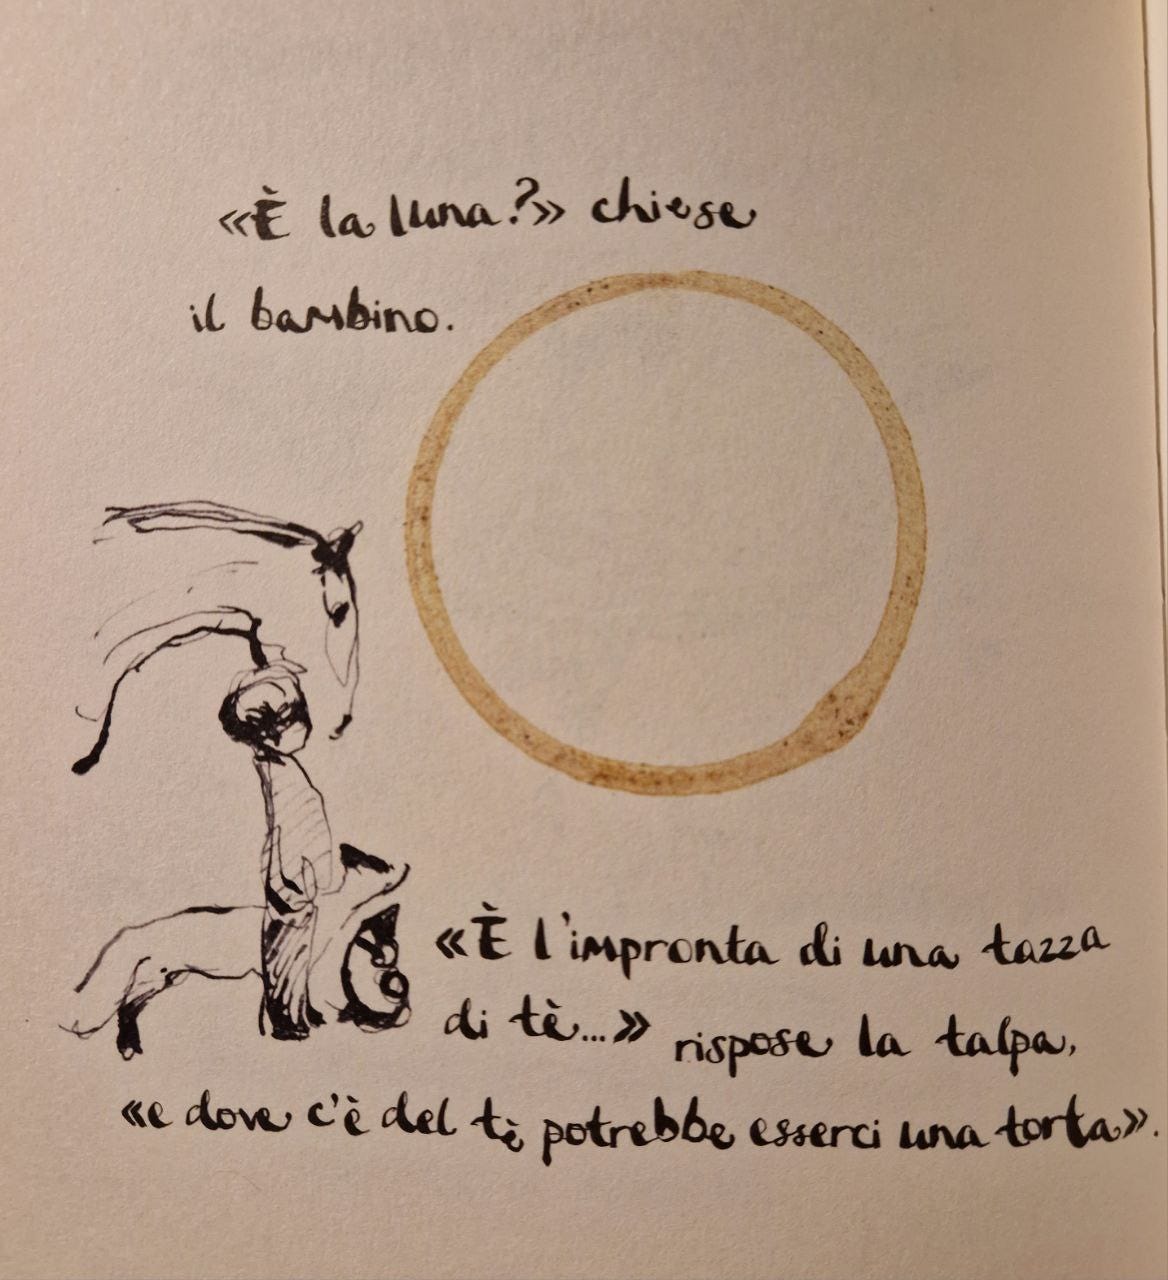 «È la luna?» chiese
il bambino.
«È l'impronta di una tazza
di tè...» rispose la talpa,
«e dove c'è del tè potrebbe esserci una torta».